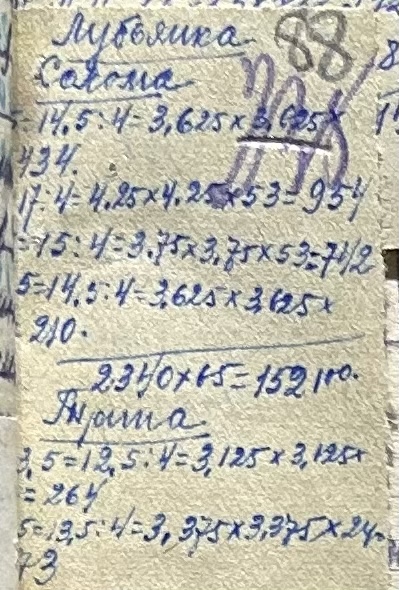 Лубянка 88
Солома
= 14,5 : 4 = 3,625 × 3,625 ×
434.
17 : 4 = 4.25 × 4.25 × 53 = 954
= 15 : 4 = 3.75 × 3,75 × 53 = 742
5 = 14,5 : 4 = 3,625 × 3,625 ×
210.
2340 × 65 = 152 100.
3,5 = 12,5 : 4 = 3,125 × 3,125 ×
= 264
5 = 13,5 : 4 = 3,375 × 3,375 × 24 =
73